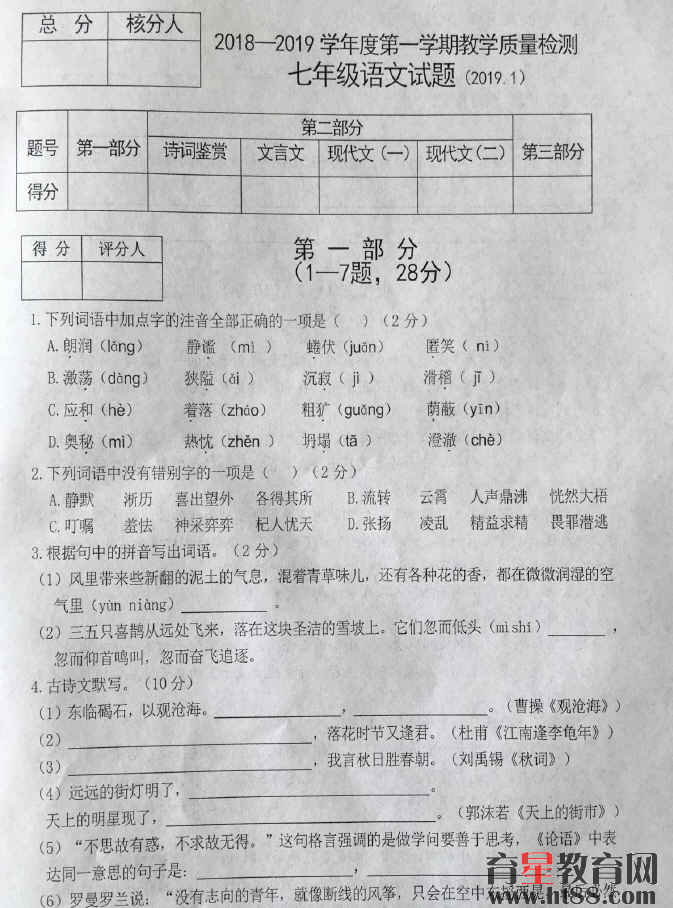 总 分 核分人
2018—2019 学年度第一学期教学质量检测
七年级语文试题（2019.1）
题号 第一部分 第二部分 第三部分
诗词鉴赏 文言文 现代文（一） 现代文（二）
得分
得 分 评分人
第 一 部 分
（1—7题，28分）
1.下列词语中加点字的注音全部正确的一项是（ ）（2 分）
A.朗润（lǎng） 静谧（mì ） 蜷伏（juǎn） 匿笑（ nì）
B.激荡（dàng） 狭隘（ǎi ） 沉寂（ jì ） 滑稽（ jī ）
C.应和（hè） 着落（zháo） 粗犷（guǎng） 荫蔽（yīn）
D.奥秘（mì） 热忱（zhěn ） 坍塌（tā ） 澄澈（chè）
2.下列词语中没有错别字的一项是（ ）（2 分）
A.静默 淅历 喜出望外 各得其所 B.流转 云霄 人声鼎沸 恍然大梧
C.叮嘱 羞怯 神采弈弈 杞人忧天 D.张扬 凌乱 精益求精 畏罪潜逃
3.根据句中的拼音写出词语。（2 分）
（1）风里带来些新翻的泥土的气息，混着青草味儿，还有各种花的香，都在微微润湿的空
气里（yùn niàng）__________ 。
（2）三五只喜鹊从远处飞来，落在这块圣洁的雪坡上。它们忽而低头（mìshí）_______ ，
忽而仰首鸣叫，忽而奋飞追逐。
4.古诗文默写。（10 分）
（1）东临碣石，以观沧海。______________，______________。（曹操《观沧海》）
（2）______________________，落花时节又逢君。（杜甫《江南逢李龟年》）
（3）______________________，我言秋日胜春朝。（刘禹锡《秋词》）
（4）远远的街灯明了，______________________。
天上的明星现了，______________________。（郭沫若《天上的街市》）
（5）“不思故有惑，不求故无得。”这句格言强调的是做学问要善于思考，《论语》中表
达同一意思的句子是：______________，
（6）罗曼罗兰说：“没有志向的青年，就像断线的风筝，只会在空中
育星教育网
www.ht88.com